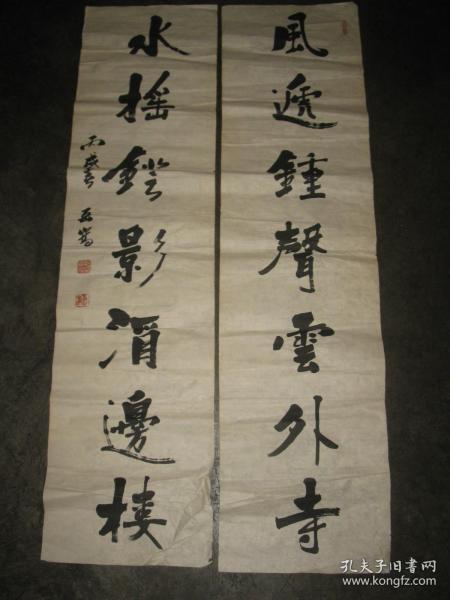 風遞鍾聲雲外寺
水搖鐙影渭邊樓
丙戌春
孔夫子旧书网
www.kongfz.com